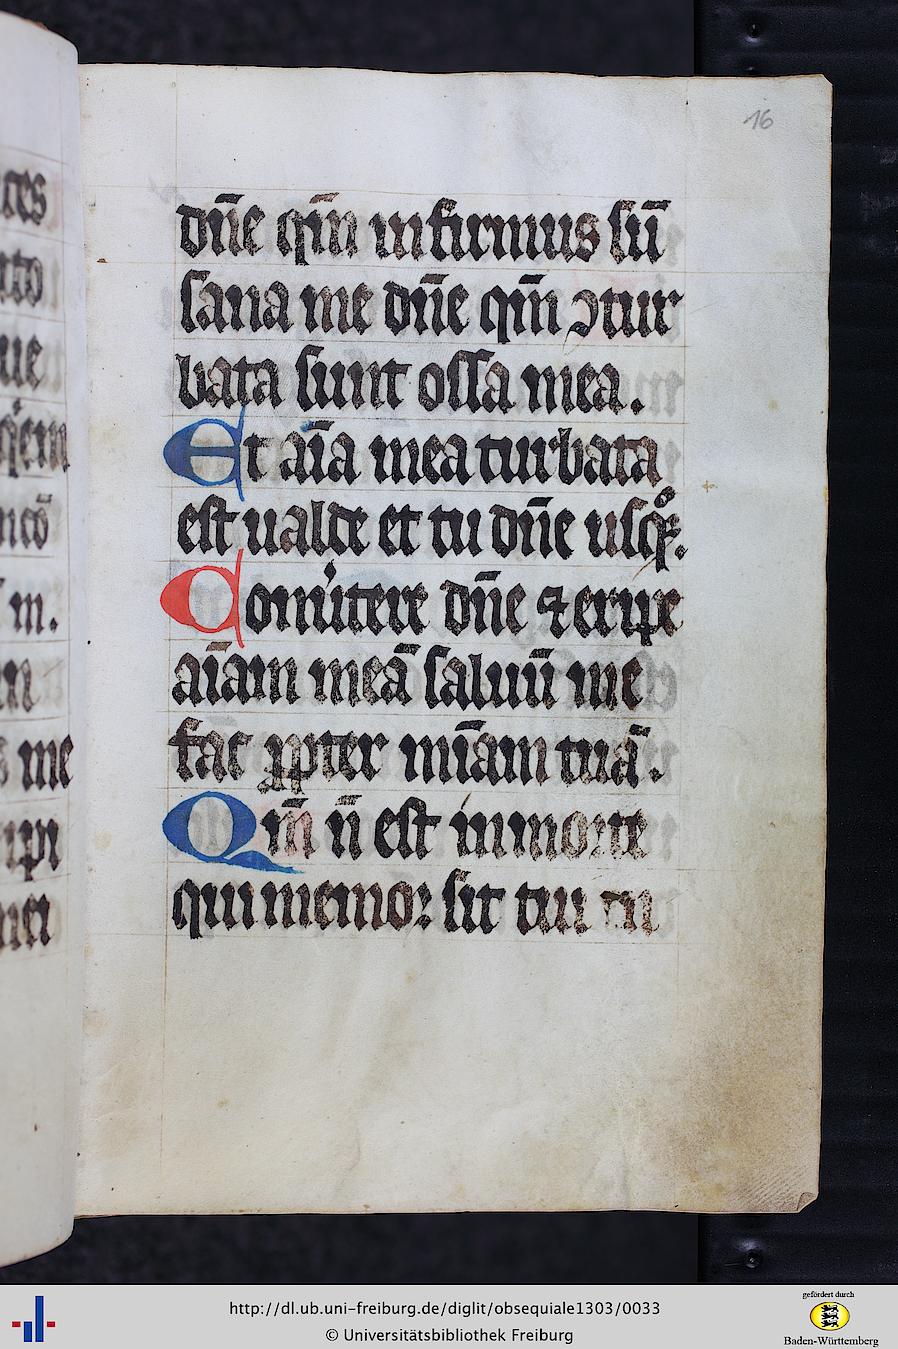 16
dn̄e qm̄ infirmus sū
sana me dn̄e qm̄ ↄtur
bata sunt ossa mea.
Et aīa mea turbata
est ualde et tu dn̄e usqͦꝫ.
Conu̾tere dn̄e ⁊ eripe
aīam meā saluū me
fac ꝓpter mīam tuā.
Qm̄ n̄ est in morte
qui memoꝛ sit tui in
http://dl.ub.uni-freiburg.de/diglit/obsequiale1303/0033
© Universitätsbibliothek Freiburg
gefördert durch
Baden-Württemberg